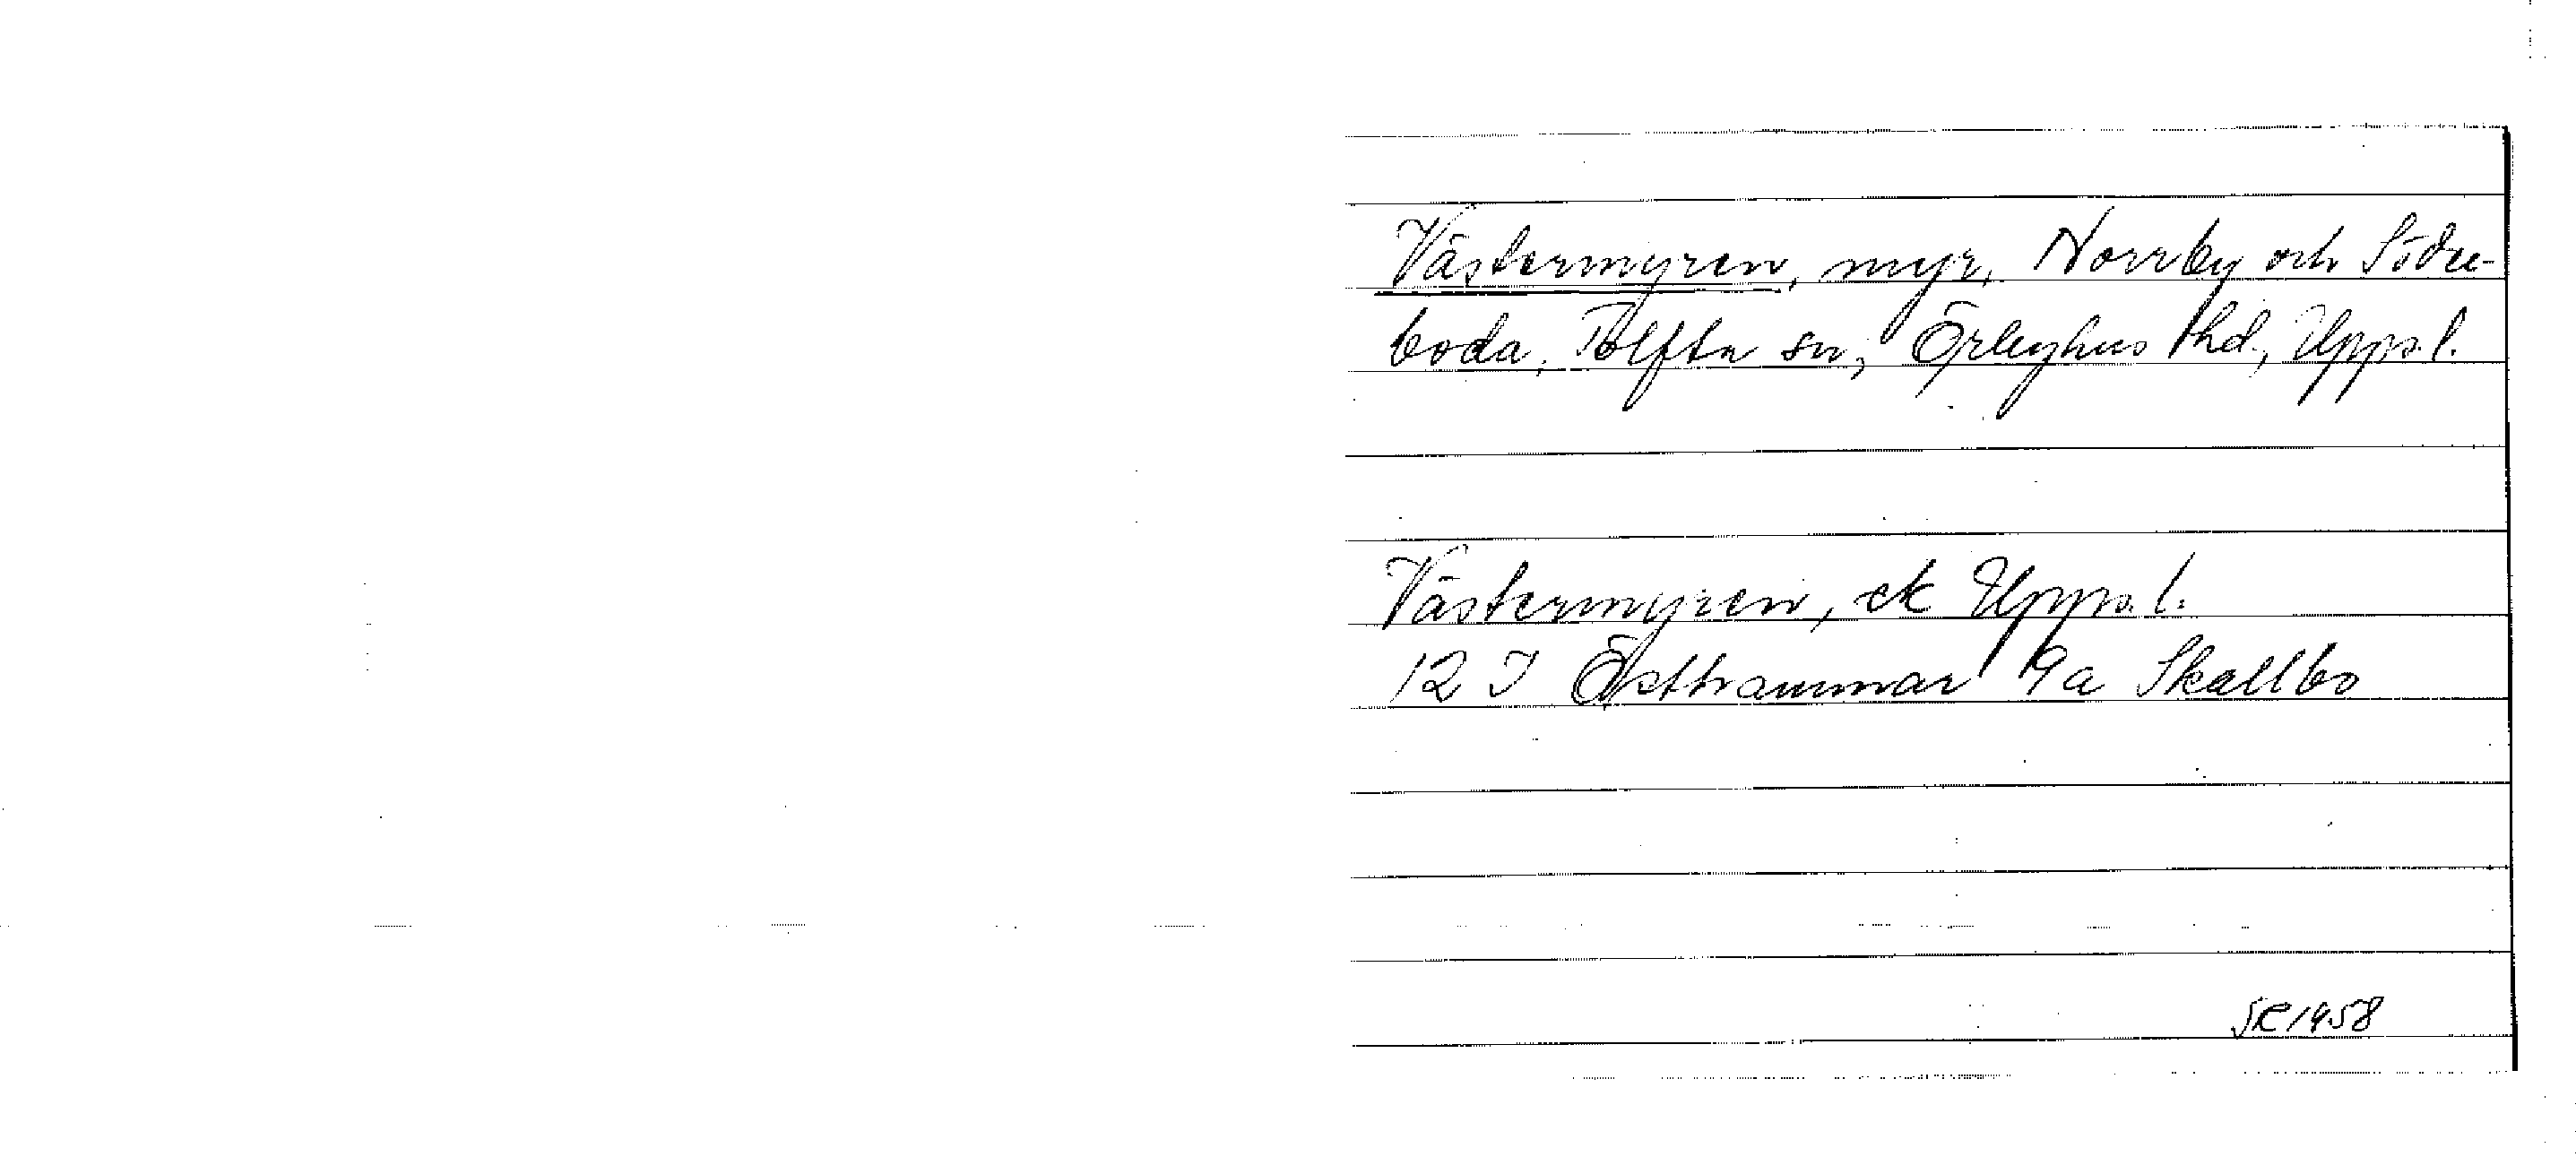 Västermyren, myr, Norrby och Södre-
boda, Tolfta sn, Örbyhus hd, Upps. l.
Västermyren, ek Upps. l.
12 I Östhammar 9a Skallbo
SR 1958